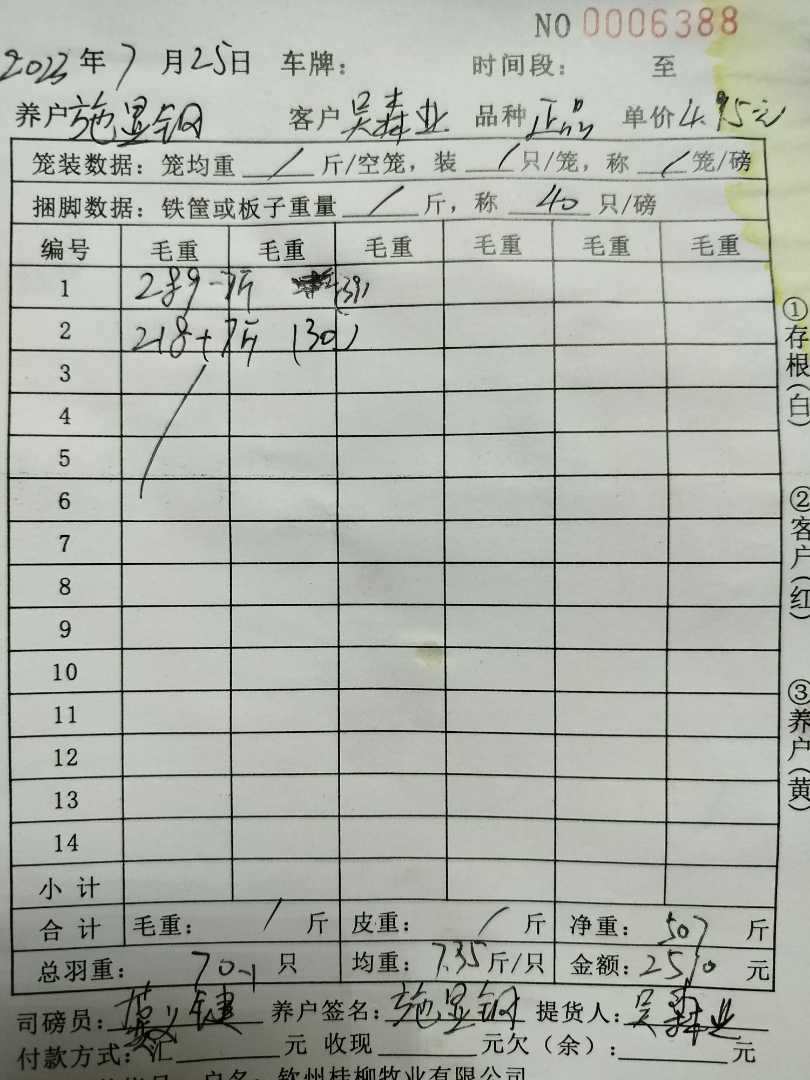 NO 0006388
2023年7月25日 车牌： 时间段： 至
养户施显钢 客户吴森业 品种正品 单价4.95元
笼装数据：笼均重/斤/空笼，装/只/笼，称/笼/磅
捆脚数据：铁筐或板子重量/斤，称40只/磅
编号 毛重 毛重 毛重 毛重 毛重 毛重
1 289-7斤 (39)
2 218+7斤 (30)
3
4
5
6
7
8
9
10
11
12
13
14
小计
合计 毛重：/斤 皮重：/斤 净重：507斤
总羽重：70-1只 均重：7.35斤/只 金额：2510元
司磅员： 养户签名：施显钢 提货人：吴森业
付款方式：汇 元 收现 元欠（余）： 元
户名：钦州桂柳牧业有限公司
①存根（白）
②客户（红）
③养户（黄）